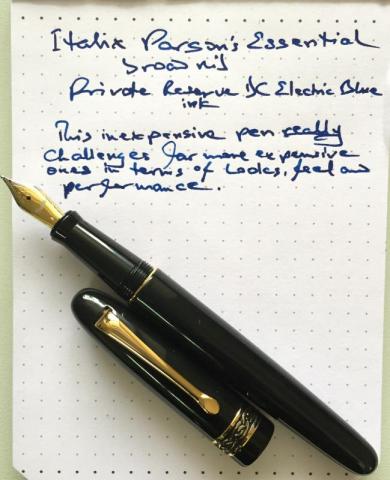 Italix Parson's Essential
broad nib
Private Reserve DC Electric Blue
ink
This inexpensive pen really
challenges far more expensive
ones in terms of looks, feel and
performance.